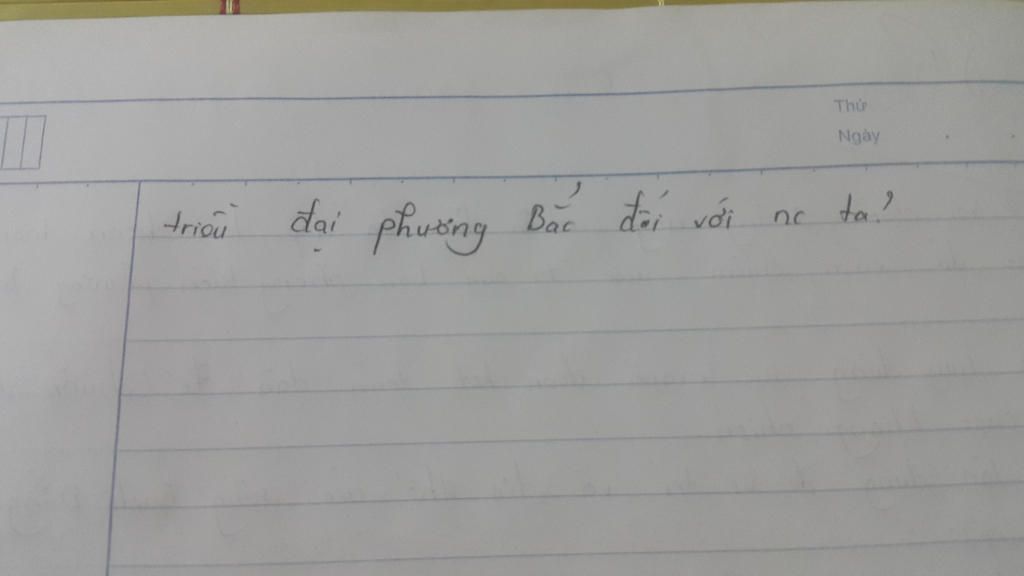 Thứ
Ngày
triều đại phương Bắc đối với nc ta?